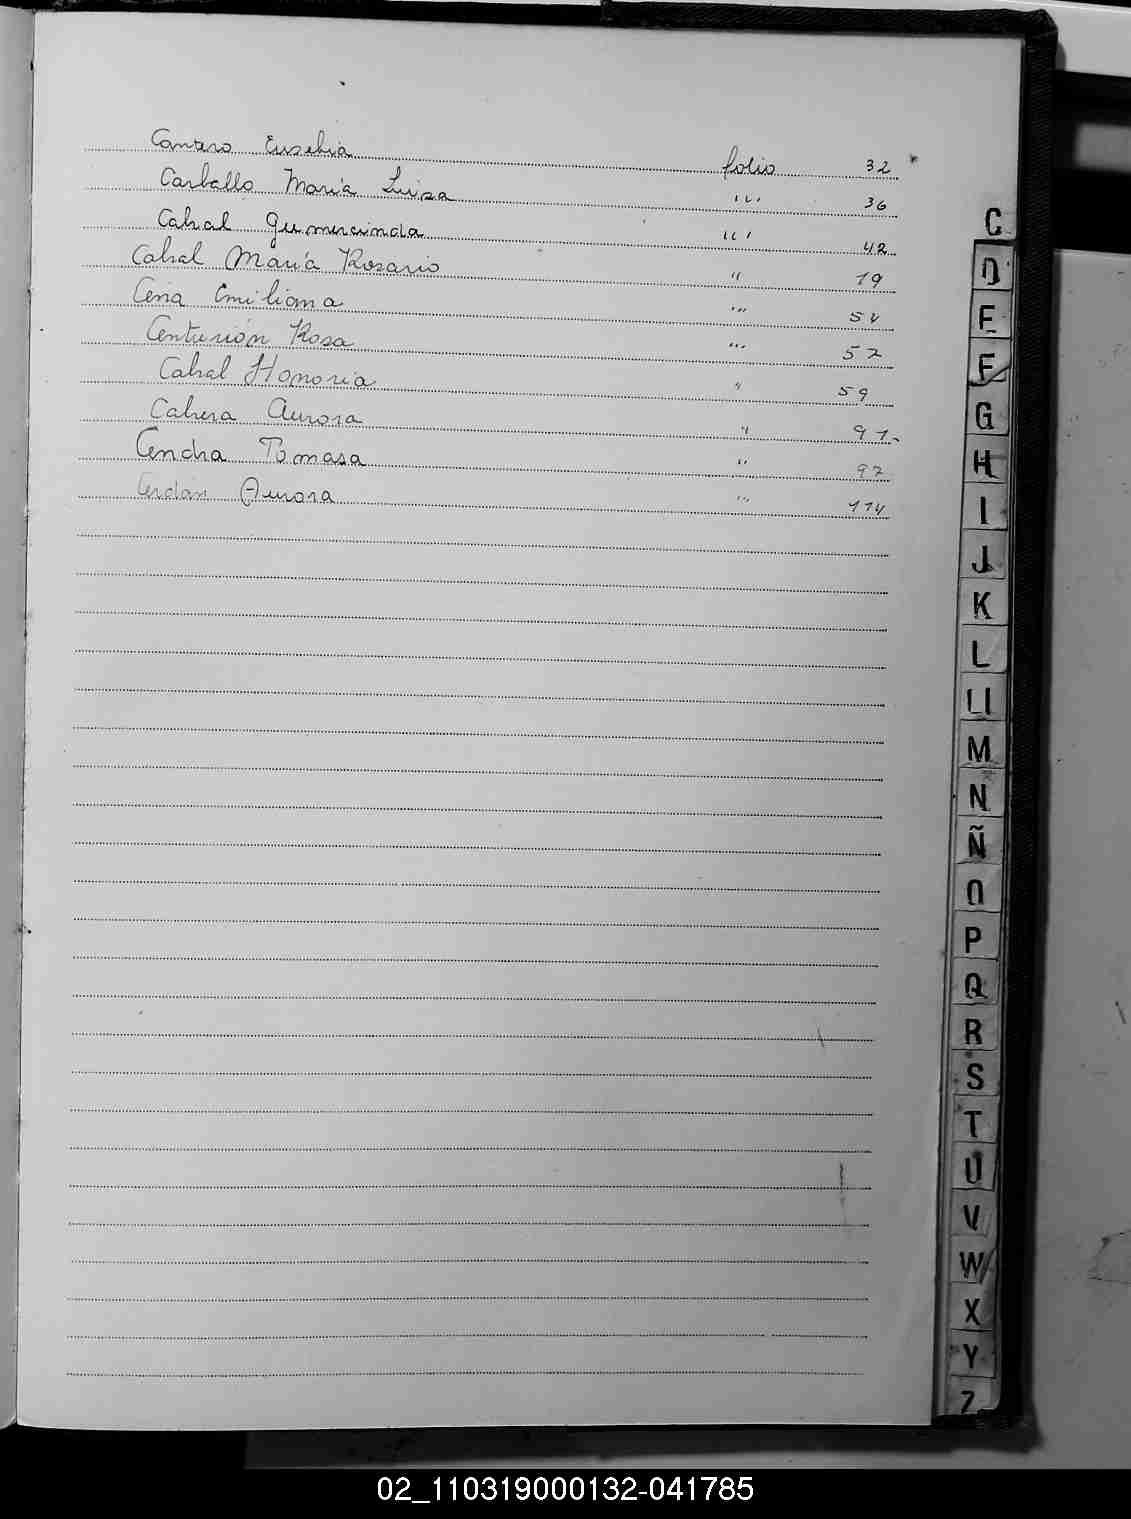 Cantero Eusebia folio 32
Carballo María Luisa " 36
Cabral Gumercinda " 42
Cabral María Rosario " 19
Emiliana " 54
Centurión Rosa " 52
Cabral Honoria " 59
Cabrera Aurora " 91
Cendra Tomasa " 92
Cerdán Aurora " 114
C
D
E
F
G
H
I
J
K
L
Ll
M
N
Ñ
O
P
Q
R
S
T
U
V
W
X
Y
Z
02_110319000132-041785